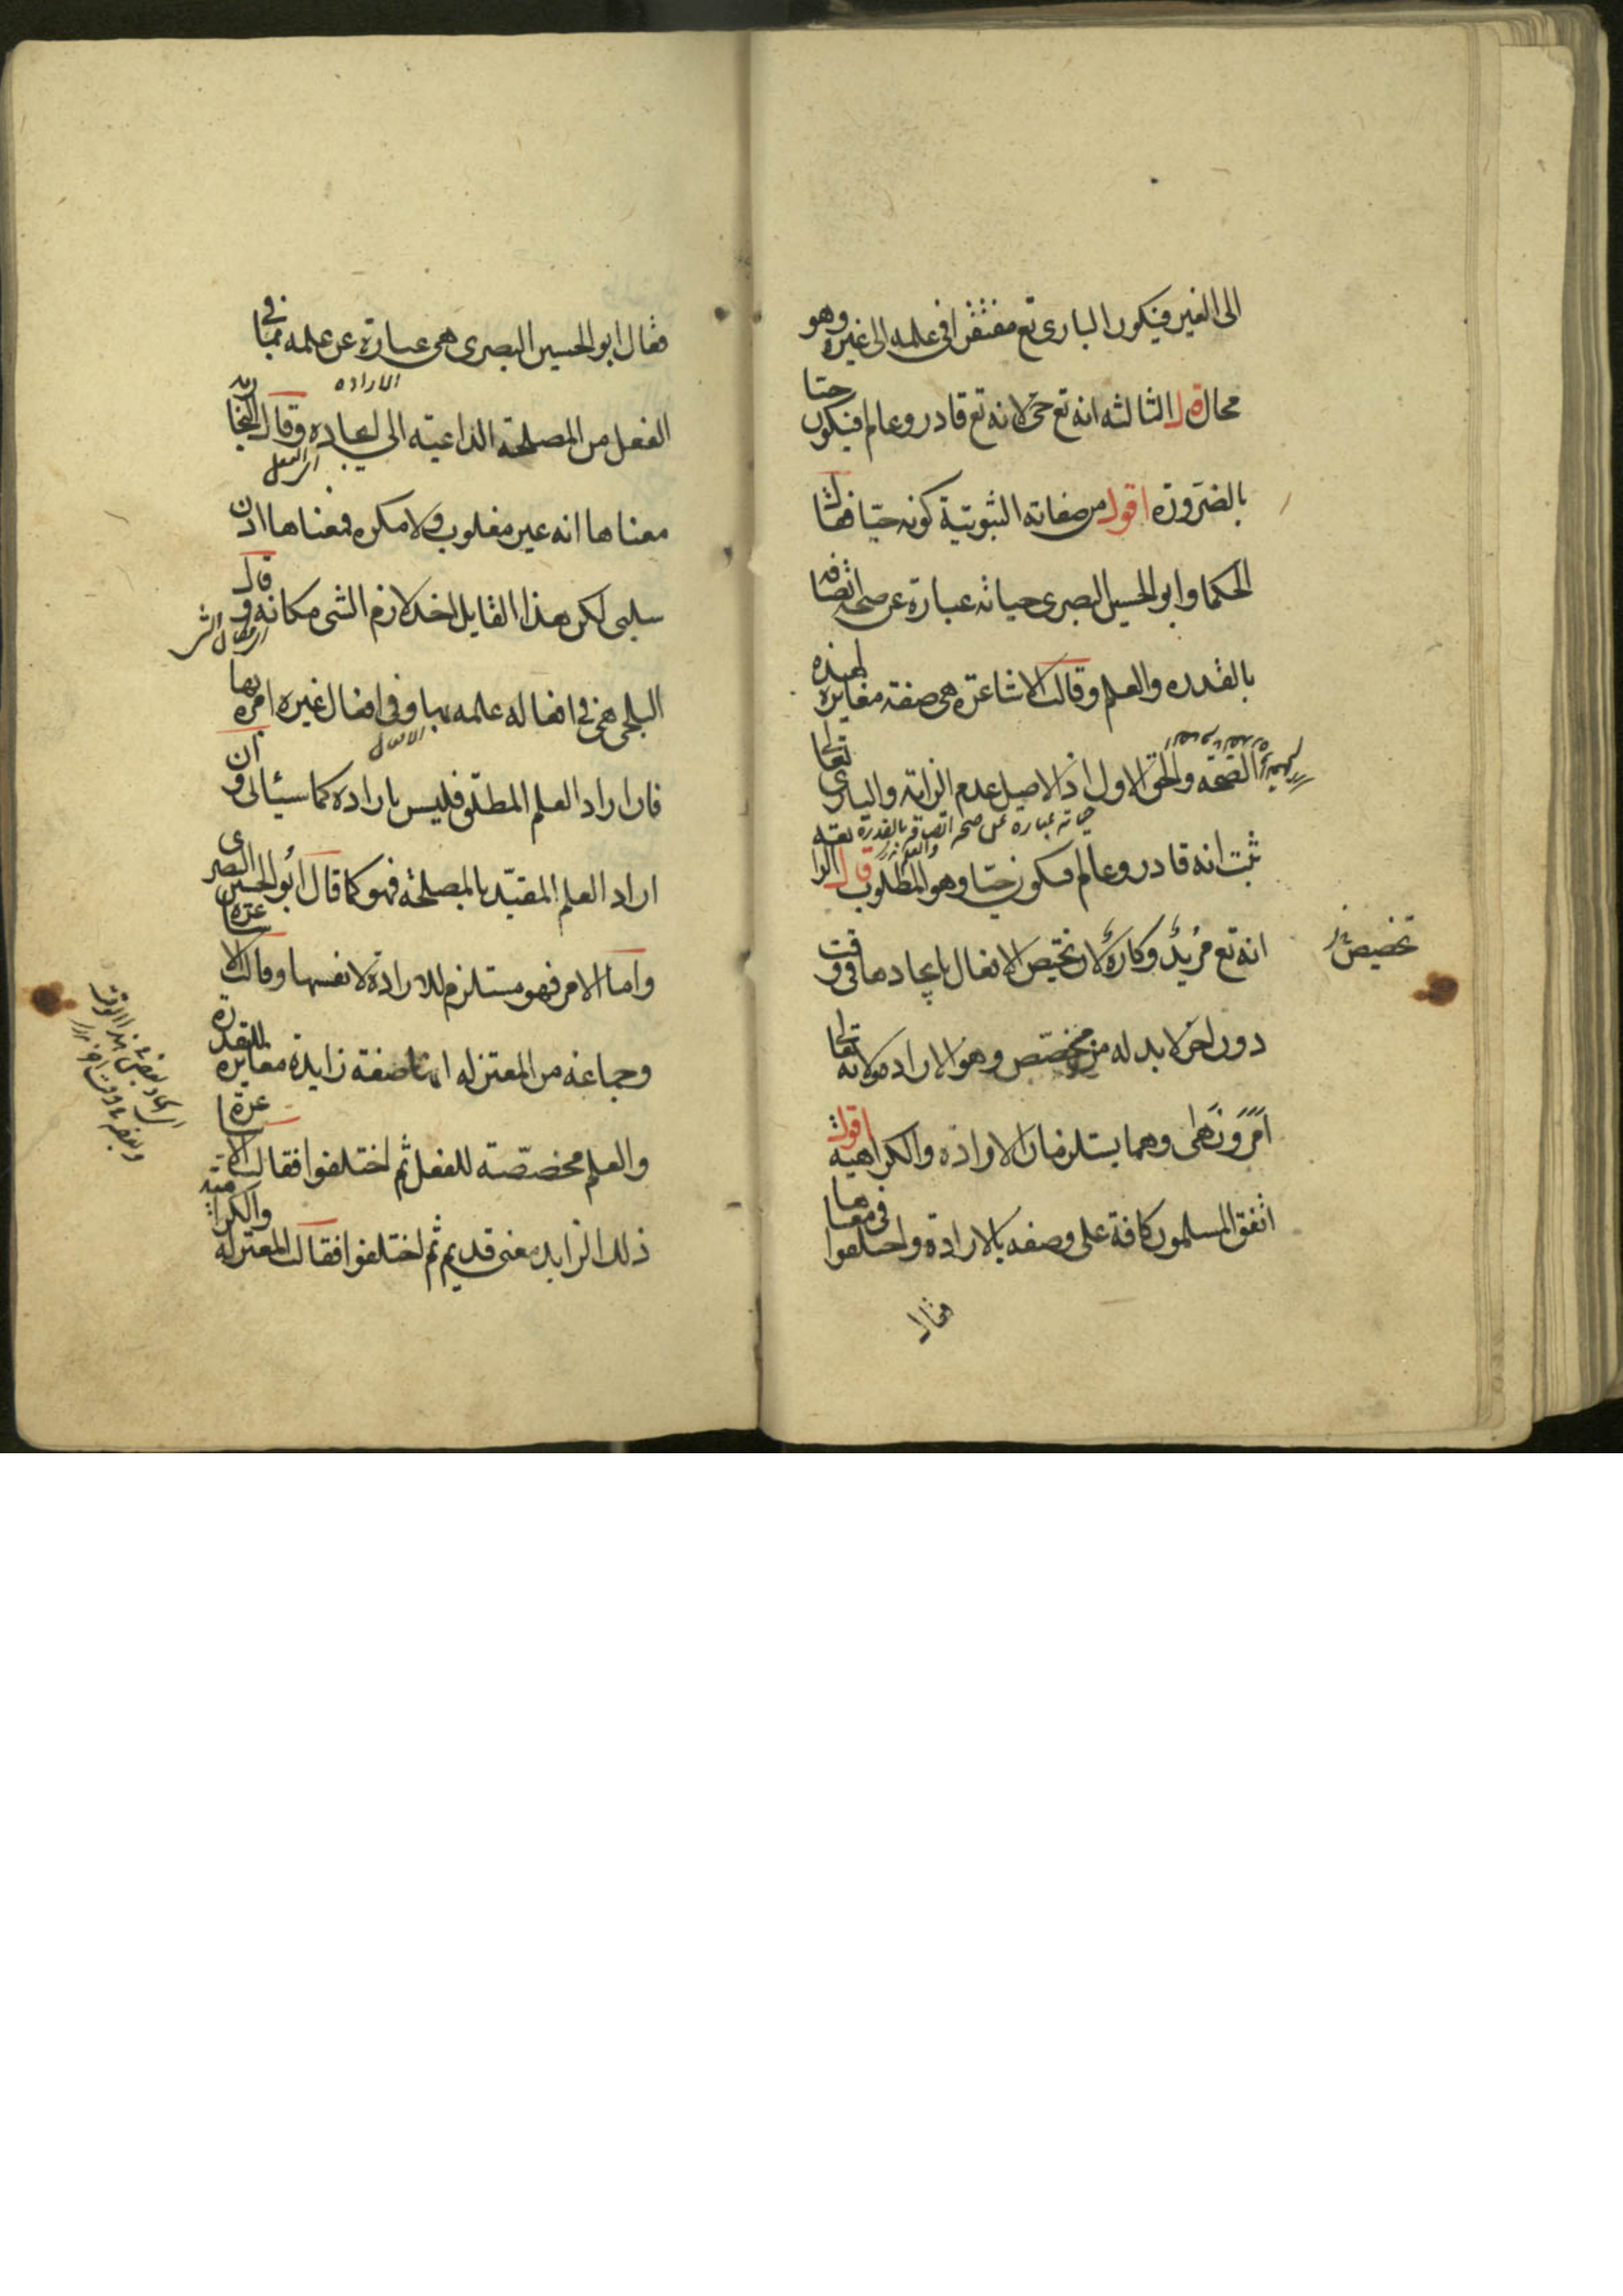 الى الغير فيكون البارى تع مفتقرا فى علمه الى غيره وهو
محال قال الثالثه انه تع حى لانه تع قادر وعالم فيكون حيا
بالضرورة اقول من صفاته الثبوتية كونه حيا فقالت
الحكما وابو الحسين البصرى حياته عبارة عن صحة اتصافه
بالقدره والعلم وقالت الاشاعرة هى صفة مغايرة لهذه
الصحة والحق الاول اذ الاصل عدم الزايد والبارى تعالى
حياته عبارة عن صحة اتصافه بالقدرة والعلم
ثبت انه قادر وعالم فيكون حيا وهو المطلوب قال الرا
انه تع مريد وكاره لان تخصيص الافعال بايجادها فى وقت
تخصيص
دون اخر لا بد له من مخصص وهو الارادة ولانه تعالى
امر ونهى وهما يستلزمان الارادة والكراهية اقول
اتفق المسلمون كافة على وصفه بالارادة واختلفوا فى معناها
فقال
فقال ابو الحسين البصرى هى عبارة عن علمه بما فى
الاراده
الفعل من المصلحة الداعية الى ايجاده وقال النجار
معناها انه غير مغلوب ولا مكره فمعناها اذن
سلبى لكن هذا القايل اخذ لازم الشى مكانه وقال
البلخى هى فى افعاله علمه بها وفى افعال غيره امره بها
فان اراد العلم المطلق فليس بارادة كما سيئاتى وان
اراد العلم المقيد بالمصلحة فهو كما قال ابو الحسين البصرى
واما الامر فهو مستلزم للارادة لا نفسها وقالت الاشاعرة
وجماعة من المعتزله انها صفة زايدة مغايرة للقدرة
والعلم مخصصة للفعل ثم اختلفوا فقالت الاشاعرة
ذلك الزايد معنى قديم ثم اختلفوا فقالت المعتزله والكرامية